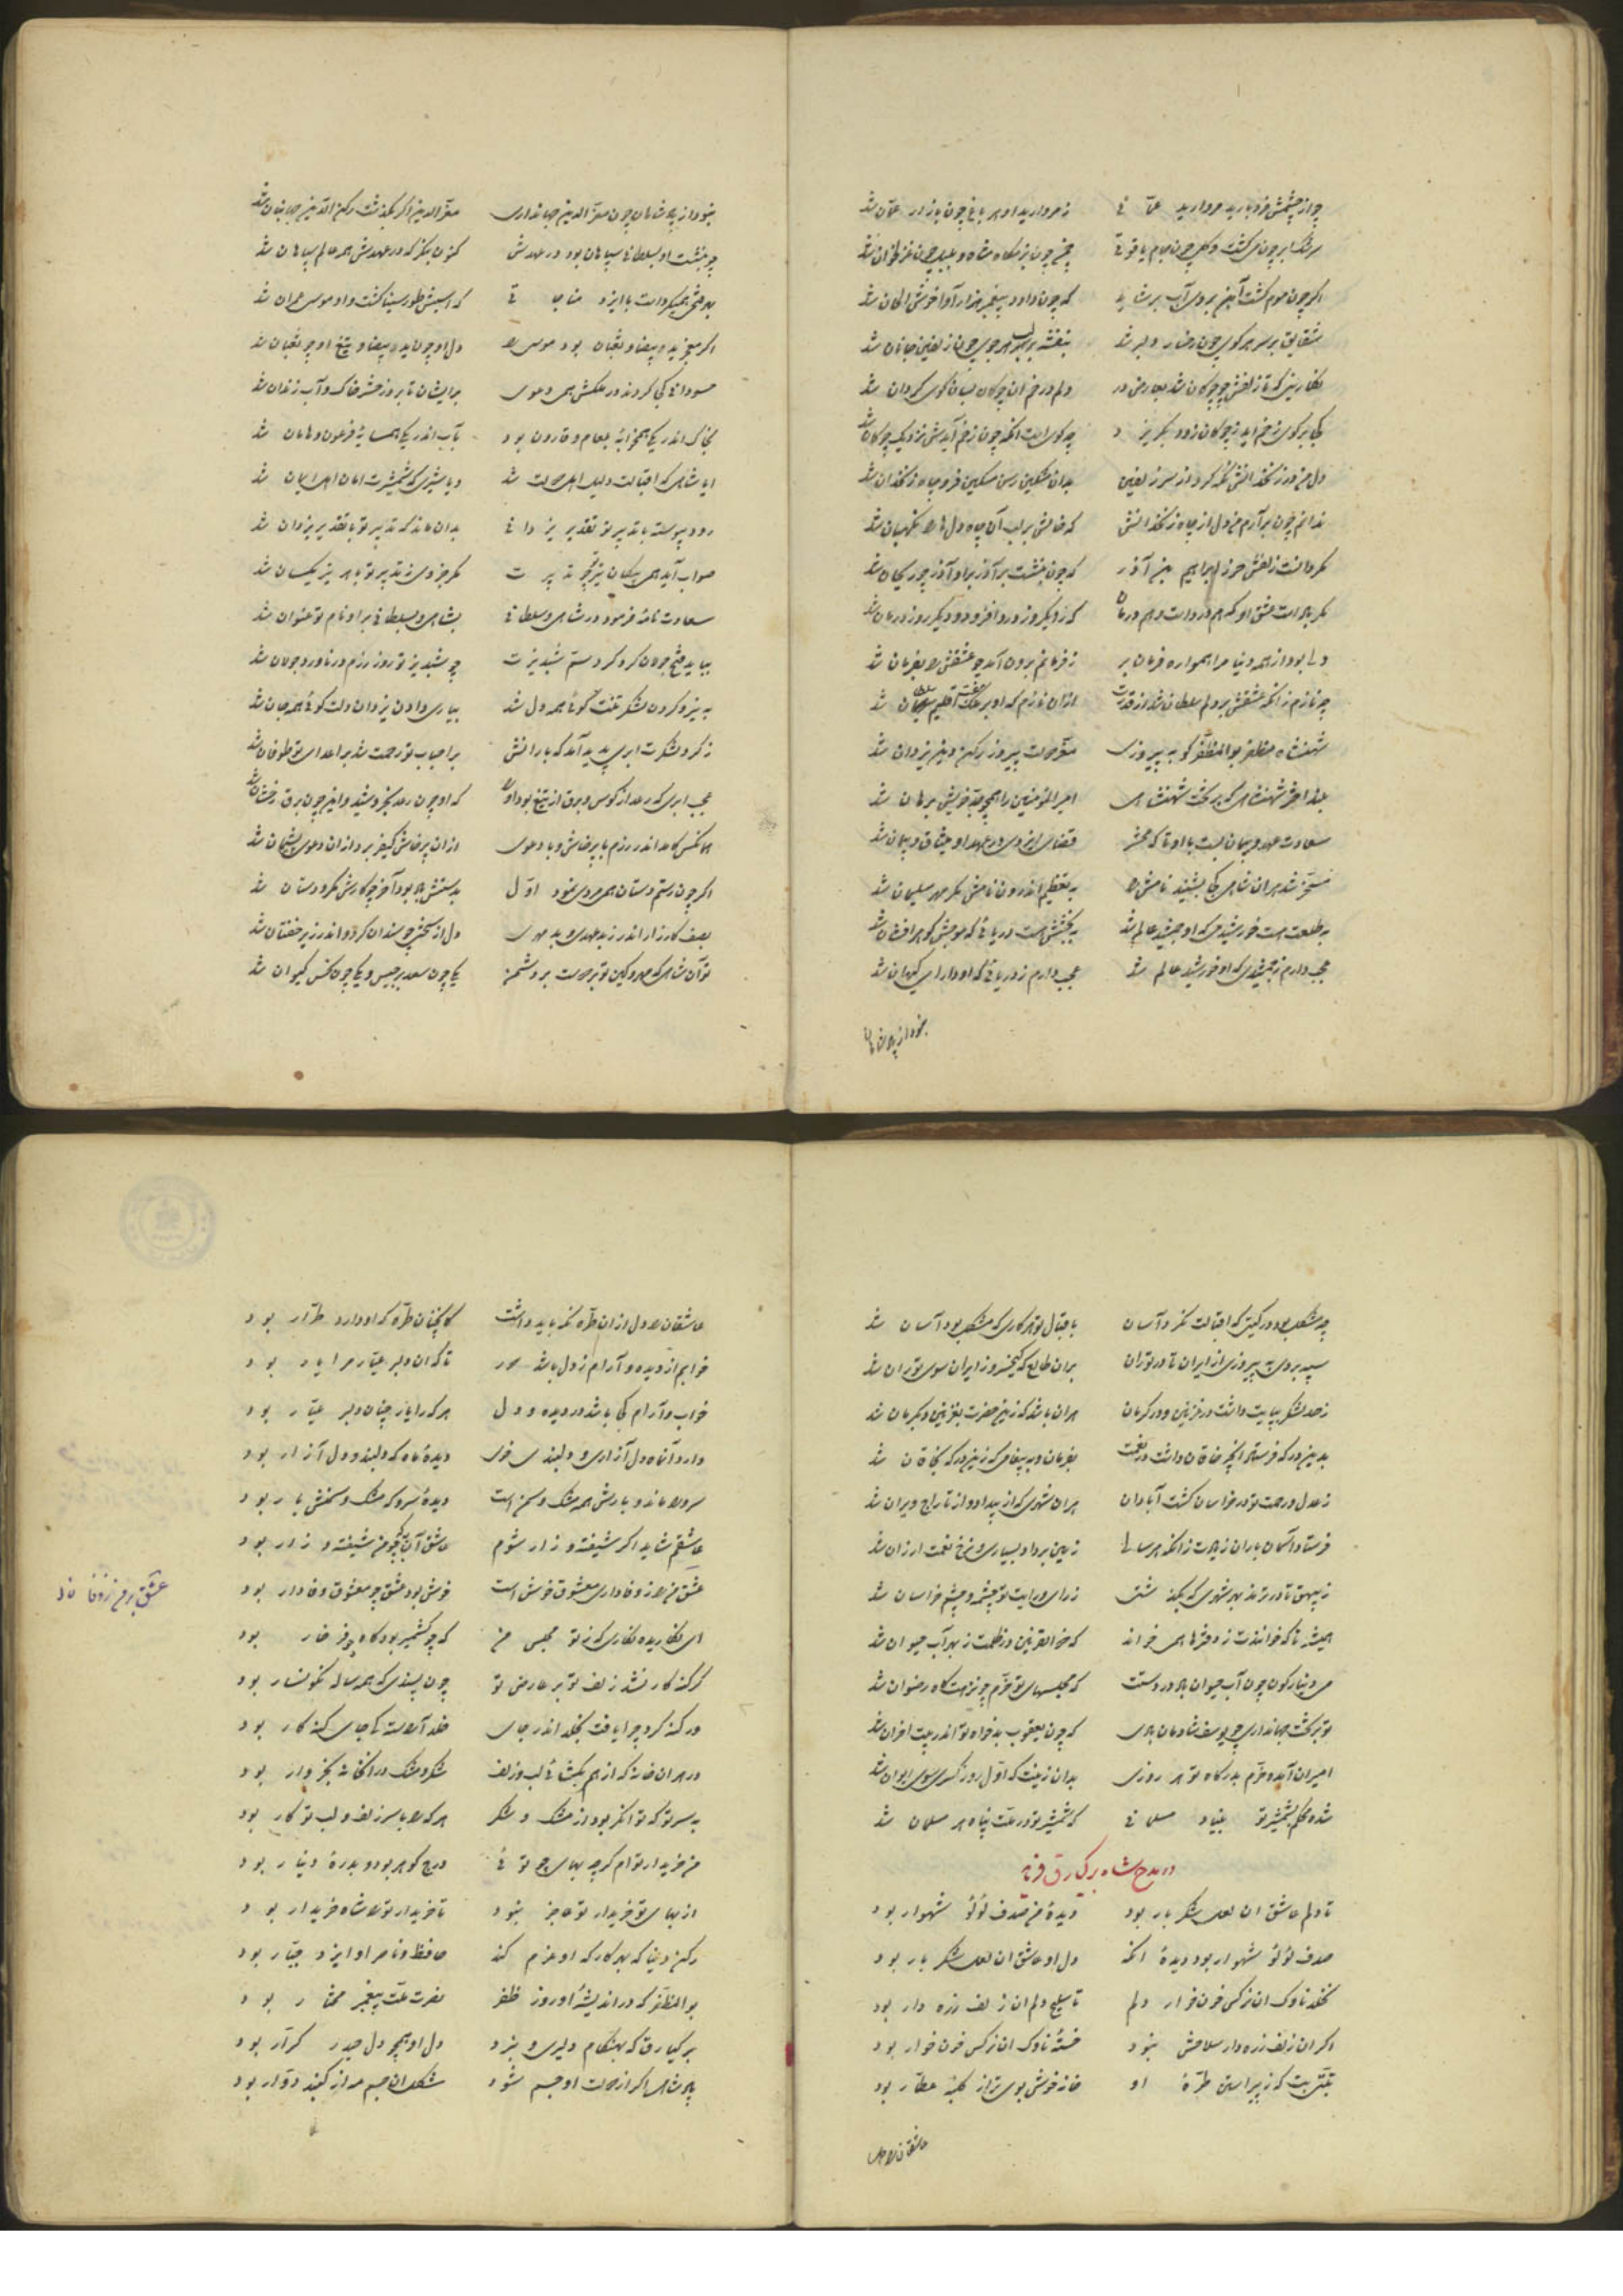 چو از چشمش فرو بارید مروارید عمانی ز مروارید او هر باغ چون بازار عمان شد
سرشک ابر چون می گشت و گل چون جام یاقوتی چمن چون بزمگاه شاه و بلبل چون غزلخوان شد
اگر چون موم گشت آهن بر وی آب بر شاید که چون داود پیغمبر هزار آوا خوش الحان شد
شقایق بر سر هر کوی چون رخسار دلبر شد بنفشه بر لب هر جوی چون زلفین جانان شد
نگارینی که تا زلفش چو چوگان شد بعارض در دلم در خم آن چوگان بسان گوی گردان شد
کجا بر گوی زخم آید ز چوگان زود بگریزد چه گوی است آنکه چون زخم آیدش نزدیک چوگان شد
دل من در زنخدانش نگه کرد از سر زلفین بدان مشکین رسن مسکین فرو چاه زنخدان شد
ندانم چون برآرم من دل از چاه زنخدانش که خالش بر لب آن چاه دلها را نگهبان شد
مگر دانست زلفش حرز ابراهیم بن آزر که چون بنشست بر آذر برو آذر چو ریحان شد
مگر بلاست عشق او که هم درد است و هم درمان که زو یک روز درد افزود و دیگر روز درمان شد
دلی بود از همه دنیا مرا همواره فرمان بر ز فرمانم برون آمد چو عشقش را بفرمان شد
چه نازم زانکه عشقش بر دلم سلطان شد از قدرت از آن نازم که او بر ملک هفت اقلیم سلطان شد
شهنشاه مظفر بوالمظفر کو به پیروزی معز دولت پیروز و رکن دین یزدان شد
بلند اختر شهنشاهی که بر تخت شهنشاهی امیر المؤمنین را همچو جد خویش برهان شد
سعادت عهد و پیمان بست با او تا که محشر قضای ایزدی در عهد او میثاق و پیمان شد
مسخر شد هر آن شاهی کجا بشنید نامش را به تعظیم اندرون نامش مگر مهر سلیمان شد
به طلعت هست خورشیدی که او جمشید عالم شد به بخشش هست دریائی که موجش گوهر افشان شد
عجب دارم ز جمشیدی که او خورشید عالم شد عجب دارم ز دریائی که او دارای گیهان شد
نبود از پادشاهان
نبود از پادشاهان چون معز الدین جهانداری معز الدین اگر بگذشت رکن الدین جهانبان شد
چو بنشست او بسلطانی سپاهان بود در عهدش کنون بنگر که در عهدش همه عالم سپاهان شد
بهر فتحی همی کرد است با ایزد مناجاتی که اسبش طور سینا گشت و او موسی عمران شد
اگر معجز ید بیضا و ثعبان بود موسی را دل او چون ید بیضا و تیغ او چو ثعبان شد
حسودانی کجا کردند در ملکش همی دعوی بر ایشان تا بروز حشر خاک و آب زندان شد
بخاک اندر یکی همخوابهٔ بلعام و قارون بود بآب اندر یکی همسایهٔ فرعون و هامان شد
ایا شاهی که اقبالت دلیل اهل دولت شد و یا شیری که شمشیرت امان اهل ایمان شد
رود پیوسته با تدبیر تو تقدیر یزدانی بدان ماند که تدبیر تو با تقدیر یزدان شد
صواب آید همی پیکان تیر تو چو تدبیرت مگر جزوی ز تدبیر تو با هر تیر یکسان شد
سعادت نامهٔ فرمود در شاهی و سلطانی بشاهی و بسلطانی بر او نام تو عنوان شد
بباید فتح جولان کرد گرد ستم شبدیزت چو شبدیز تو روز رزم در ناورد جولان شد
به نیرو کردن لشکر تنت گوئی همه دل شد بیاری دادن یزدان دلت گوئی همه جان شد
ز گرد لشکرت ابری پدید آمد که بارانش بر احباب تو رحمت شد بر اعدای تو طوفان شد
عجب ابری که رعد از کوس و برق از تیغ بود او را که او چون رعد بخروشید و این چون برق رخشان شد
هر آنکس کامد اندر رزم با پرخاش و با دعوی از آن پرخاش کیفر برد از آن دعوی پشیمان شد
اگر چون رستم دستان همی مردی نمود اول بدستش بلا بود آخر چو کارش مکر و دستان شد
بصف کارزار اندر ز بد عهدی و بد مهری دل از سختی چو سندان کرد و اندر زیر خفتان شد
تو آن شاهی که مهر و کین تو بر دوست بر دشمن یکی چون سعد برجیس و یکی چون نحس کیوان شد
چه مشکل بود در گیتی که اقبالت نکرد آسان باقبال تو هر کاری که مشکل بود آسان شد
سپه بردی به پیروزی از ایران تا در توران بر آن طالع که کیخسرو ز ایران سوی توران شد
ز حد لشکر بپایت داشت در غزنین و در کرمان هر آن باشد که زین حضرت بغزنین و بکرمان شد
بدین درگه فرستاد آنچه خاقان داشت از نعمت بفرمان و به پیغامی که زین درگه بخاقان شد
ز عدل و رحمت تو در خراسان گشت آبادان هر آن شهری که از بیداد و از تاراج ویران شد
فرستاد آسمان باران ز بهرت زانکه هر سالی زمین بر داد بسیاری و نرخ نعمت ارزان شد
ز بیهق تا در ترمذ بهر شهری که بگذشتی ز رای و رایت تو چشمه و چشم خراسان شد
همیشه تا که خوانندت ز دفترها همی خواند که ذوالقرنین در ظلمت ز بهر آب حیوان شد
می دینار گون چون آب حیوان باد در دستت که مجلسهای تو خرم چو نزهتگاه رضوان شد
تو بر تخت جهانداری چو یوسف شادمان بادی که چون یعقوب بدخواه تو اندر بیت احزان شد
امیران آمده خرم بدرگاه تو هر روزی بدان زینت که اول روز کسری سوی ایوان شد
شده محکم بشمشیر تو بنیاد مسلمانی که شمشیر تو در ملت پناه هر مسلمان شد
در مدح شاه برکیارق فرماید
تا دلم عاشق آن لعل شکر بار بود دیدهٔ من صدف لؤلؤ شهوار بود
صدف لؤلؤ شهوار بود دیدهٔ آنکه دل او عاشق آن لعل شکر بار بود
نخلد ناوک آن نرگس خون خوار دلم تا سلیح دلم آن زلف زره دار بود
اگر آن زلف زره دار سلاحش نبود خستهٔ ناوک آن نرگس خون خوار بود
تبتی بت که ز پیراستن طرهٔ او خانه خوشبوی تر از کلبهٔ عطار بود
عاشقانرا دل
عاشقان را دل از آن طره نگه باید داشت کانچنان طره که او دارد طرار بود
خوابم از دیده و آرام ز دل باشد دور تا که آن دلبر عیار مرا یار بود
خواب و آرام کجا باشد در دیده و دل هر که را یار چنان دلبر عیار بود
دارد آن ماه دل آزاری و دلبندی خوی دیدهٔ ماه که دلبند و دل آزار بود
سرو را ماند و بارش همه مشک و سمن است دیدهٔ سرو که مشک و سمنش بار بود
عاشقم شاید اگر شیفته و زار شوم عاشق آن به که چو من شیفته و زار بود
عشق من زان وفاداری معشوق خوش است خوش بود عشق چو معشوق وفادار بود
عشق بر من ز وفا
ای نگاریده نگاری که ز تو مجلس من گه چو کشمیر بود گاه چو فرخار بود
گر گنه کار نشد زلف تو بر عارض تو چون پسندی که همه ساله نگونسار بود
ور گنه کرد چرا یافت بخلد اندر جای خلد آراسته کی جای گنه کار بود
در هر آن خانه که از هم بگشائی لب و زلف شکر و مشک در آن خانه بخروار بود
به سر تو که توانگر بود از مشک و شکر هر که را با سر زلف و لب تو کار بود
من خریدار توام گرچه بهای چو توئی درج گوهر بود و بدرهٔ دینار بود
از بهای تو خریدار تو عاجز نبود تا خریدار ترا شاه خریدار بود
رکن دنیا که بهر کار که او عزم کند حافظ و ناصر او ایزد جبار بود
بوالمظفر که در اندیشهٔ او روز ظفر نصرت ملت پیغمبر مختار بود
برکیارق که بهنگام دلیری و نبرد دل او همچو دل حیدر کرار بود
پادشاهی اگر از دولت او جسم شود شکل آن جسم به از گنبد دوار بود